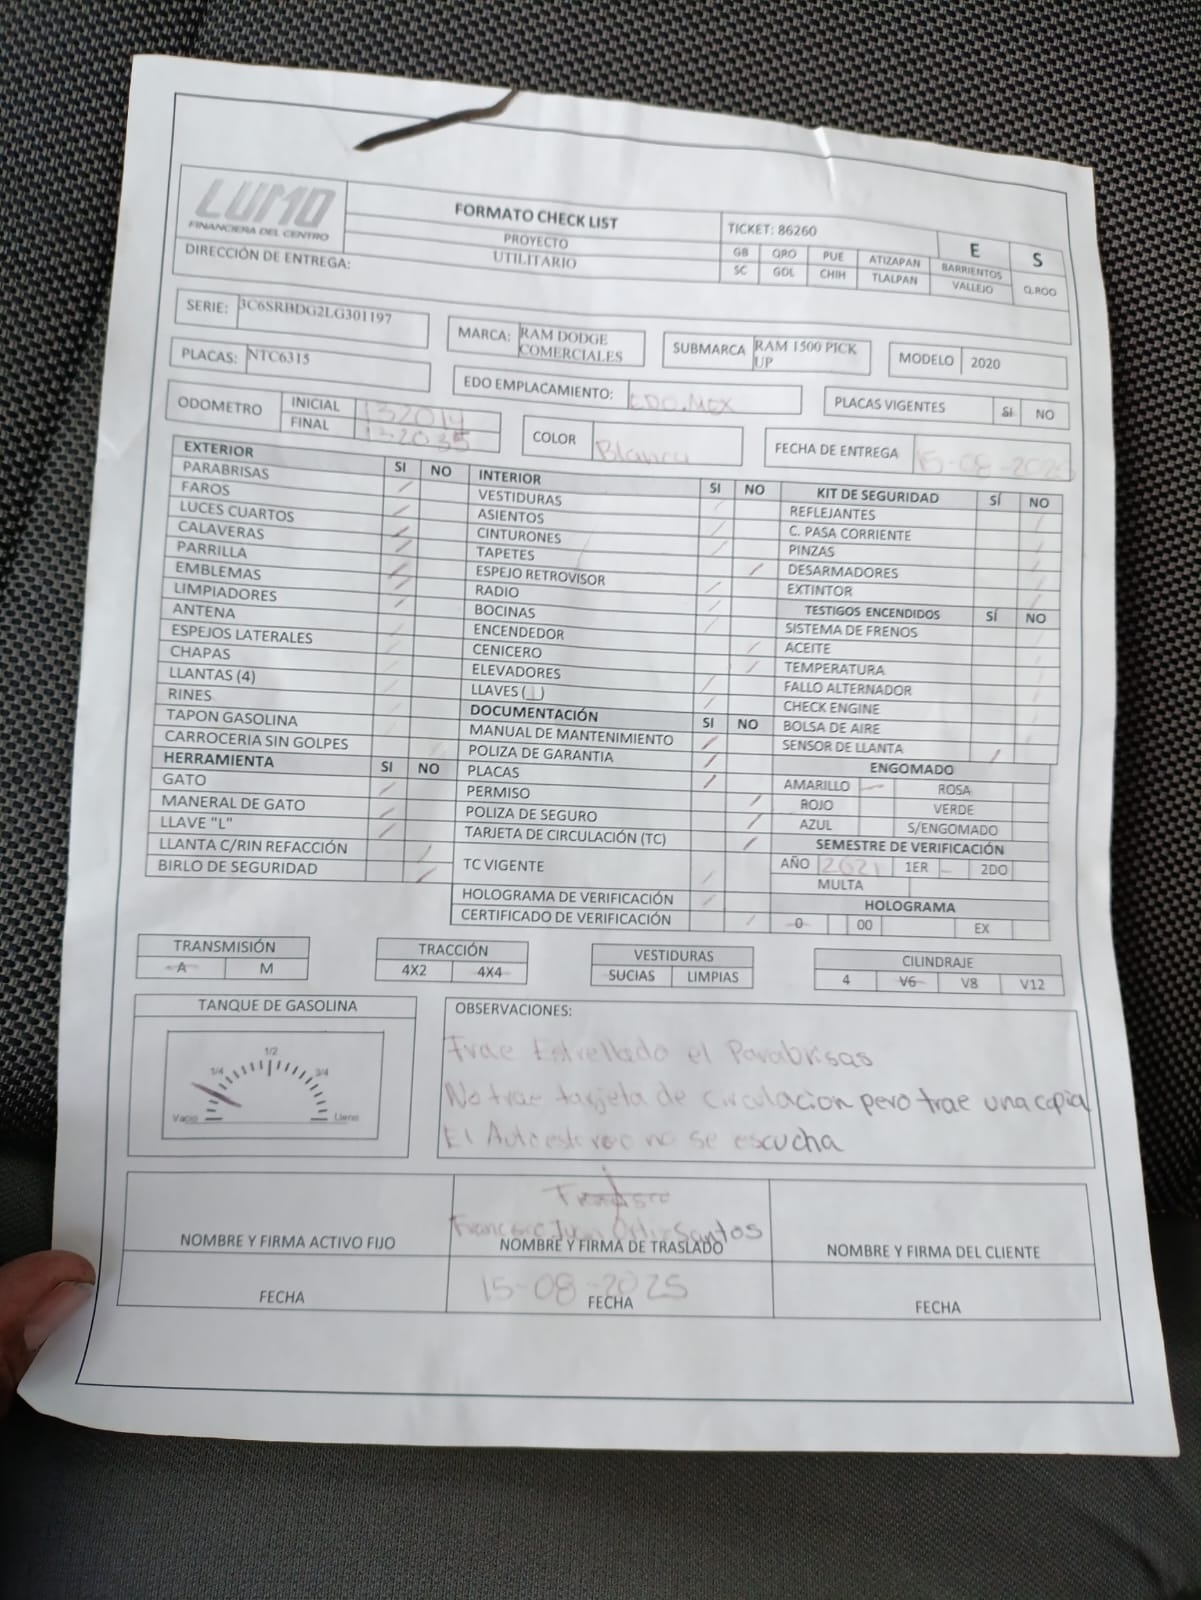 LUMO
FINANCIERA DEL CENTRO
FORMATO CHECK LIST
PROYECTO
UTILITARIO
TICKET: 86260
E
S
GB QRO PUE ATIZAPAN BARRIENTOS
SC GDL CHIH TLALPAN VALLEJO Q.ROO
DIRECCIÓN DE ENTREGA:
SERIE: 3C6SRBDG2LG301197
MARCA: RAM DODGE COMERCIALES
SUBMARCA RAM 1500 PICK UP
MODELO 2020
PLACAS: NTC6315
EDO EMPLACAMIENTO: EDO.MEX
PLACAS VIGENTES SI NO
ODOMETRO INICIAL 132014
FINAL 132035
COLOR Blanca
FECHA DE ENTREGA 15-08-2025
EXTERIOR SI NO
PARABRISAS
FAROS
LUCES CUARTOS
CALAVERAS
PARRILLA
EMBLEMAS
LIMPIADORES
ANTENA
ESPEJOS LATERALES
CHAPAS
LLANTAS (4)
RINES
TAPON GASOLINA
CARROCERIA SIN GOLPES
HERRAMIENTA SI NO
GATO
MANERAL DE GATO
LLAVE "L"
LLANTA C/RIN REFACCIÓN
BIRLO DE SEGURIDAD
INTERIOR SI NO
VESTIDURAS
ASIENTOS
CINTURONES
TAPETES
ESPEJO RETROVISOR
RADIO
BOCINAS
ENCENDEDOR
CENICERO
ELEVADORES
LLAVES (1)
DOCUMENTACIÓN SI NO
MANUAL DE MANTENIMIENTO
POLIZA DE GARANTIA
PLACAS
PERMISO
POLIZA DE SEGURO
TARJETA DE CIRCULACIÓN (TC)
TC VIGENTE
HOLOGRAMA DE VERIFICACIÓN
CERTIFICADO DE VERIFICACIÓN
KIT DE SEGURIDAD SÍ NO
REFLEJANTES
C. PASA CORRIENTE
PINZAS
DESARMADORES
EXTINTOR
TESTIGOS ENCENDIDOS SÍ NO
SISTEMA DE FRENOS
ACEITE
TEMPERATURA
FALLO ALTERNADOR
CHECK ENGINE
BOLSA DE AIRE
SENSOR DE LLANTA
ENGOMADO
AMARILLO ROSA
ROJO VERDE
AZUL S/ENGOMADO
SEMESTRE DE VERIFICACIÓN
AÑO 2021 1ER 2DO
MULTA
HOLOGRAMA
0 00 EX
TRANSMISIÓN
A M
TRACCIÓN
4X2 4X4
VESTIDURAS
SUCIAS LIMPIAS
CILINDRAJE
4 V6 V8 V12
TANQUE DE GASOLINA
1/4 1/2 3/4
Vacio Lleno
OBSERVACIONES:
Trae Estrellado el Parabrisas
No trae tarjeta de circulacion pero trae una copia
El Autoestereo no se escucha
Francisco Juan Ortiz Santos
NOMBRE Y FIRMA ACTIVO FIJO
NOMBRE Y FIRMA DE TRASLADO
NOMBRE Y FIRMA DEL CLIENTE
15-08-2025
FECHA
FECHA
FECHA